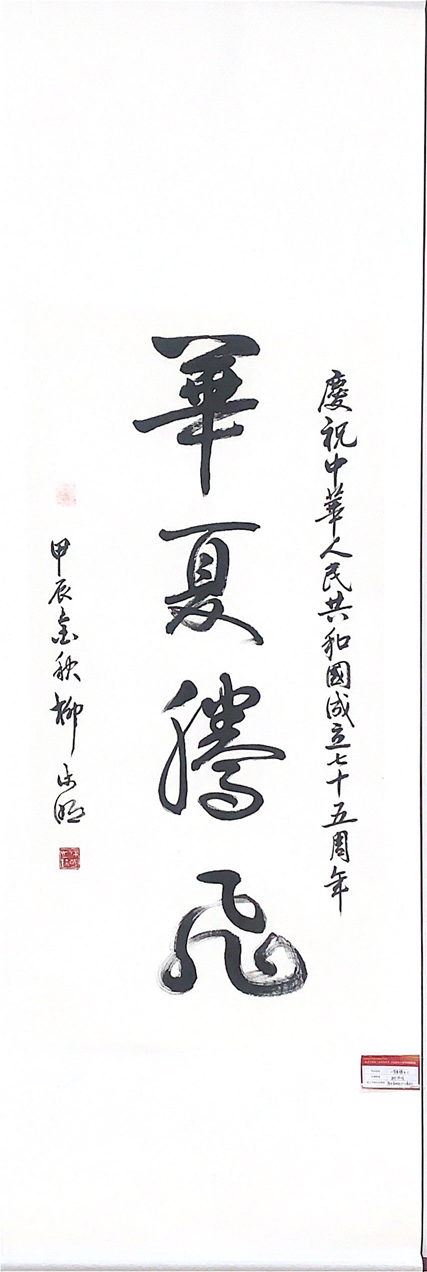 慶祝中華人民共和國成立七十五周年
華夏騰飛
甲辰金秋柳